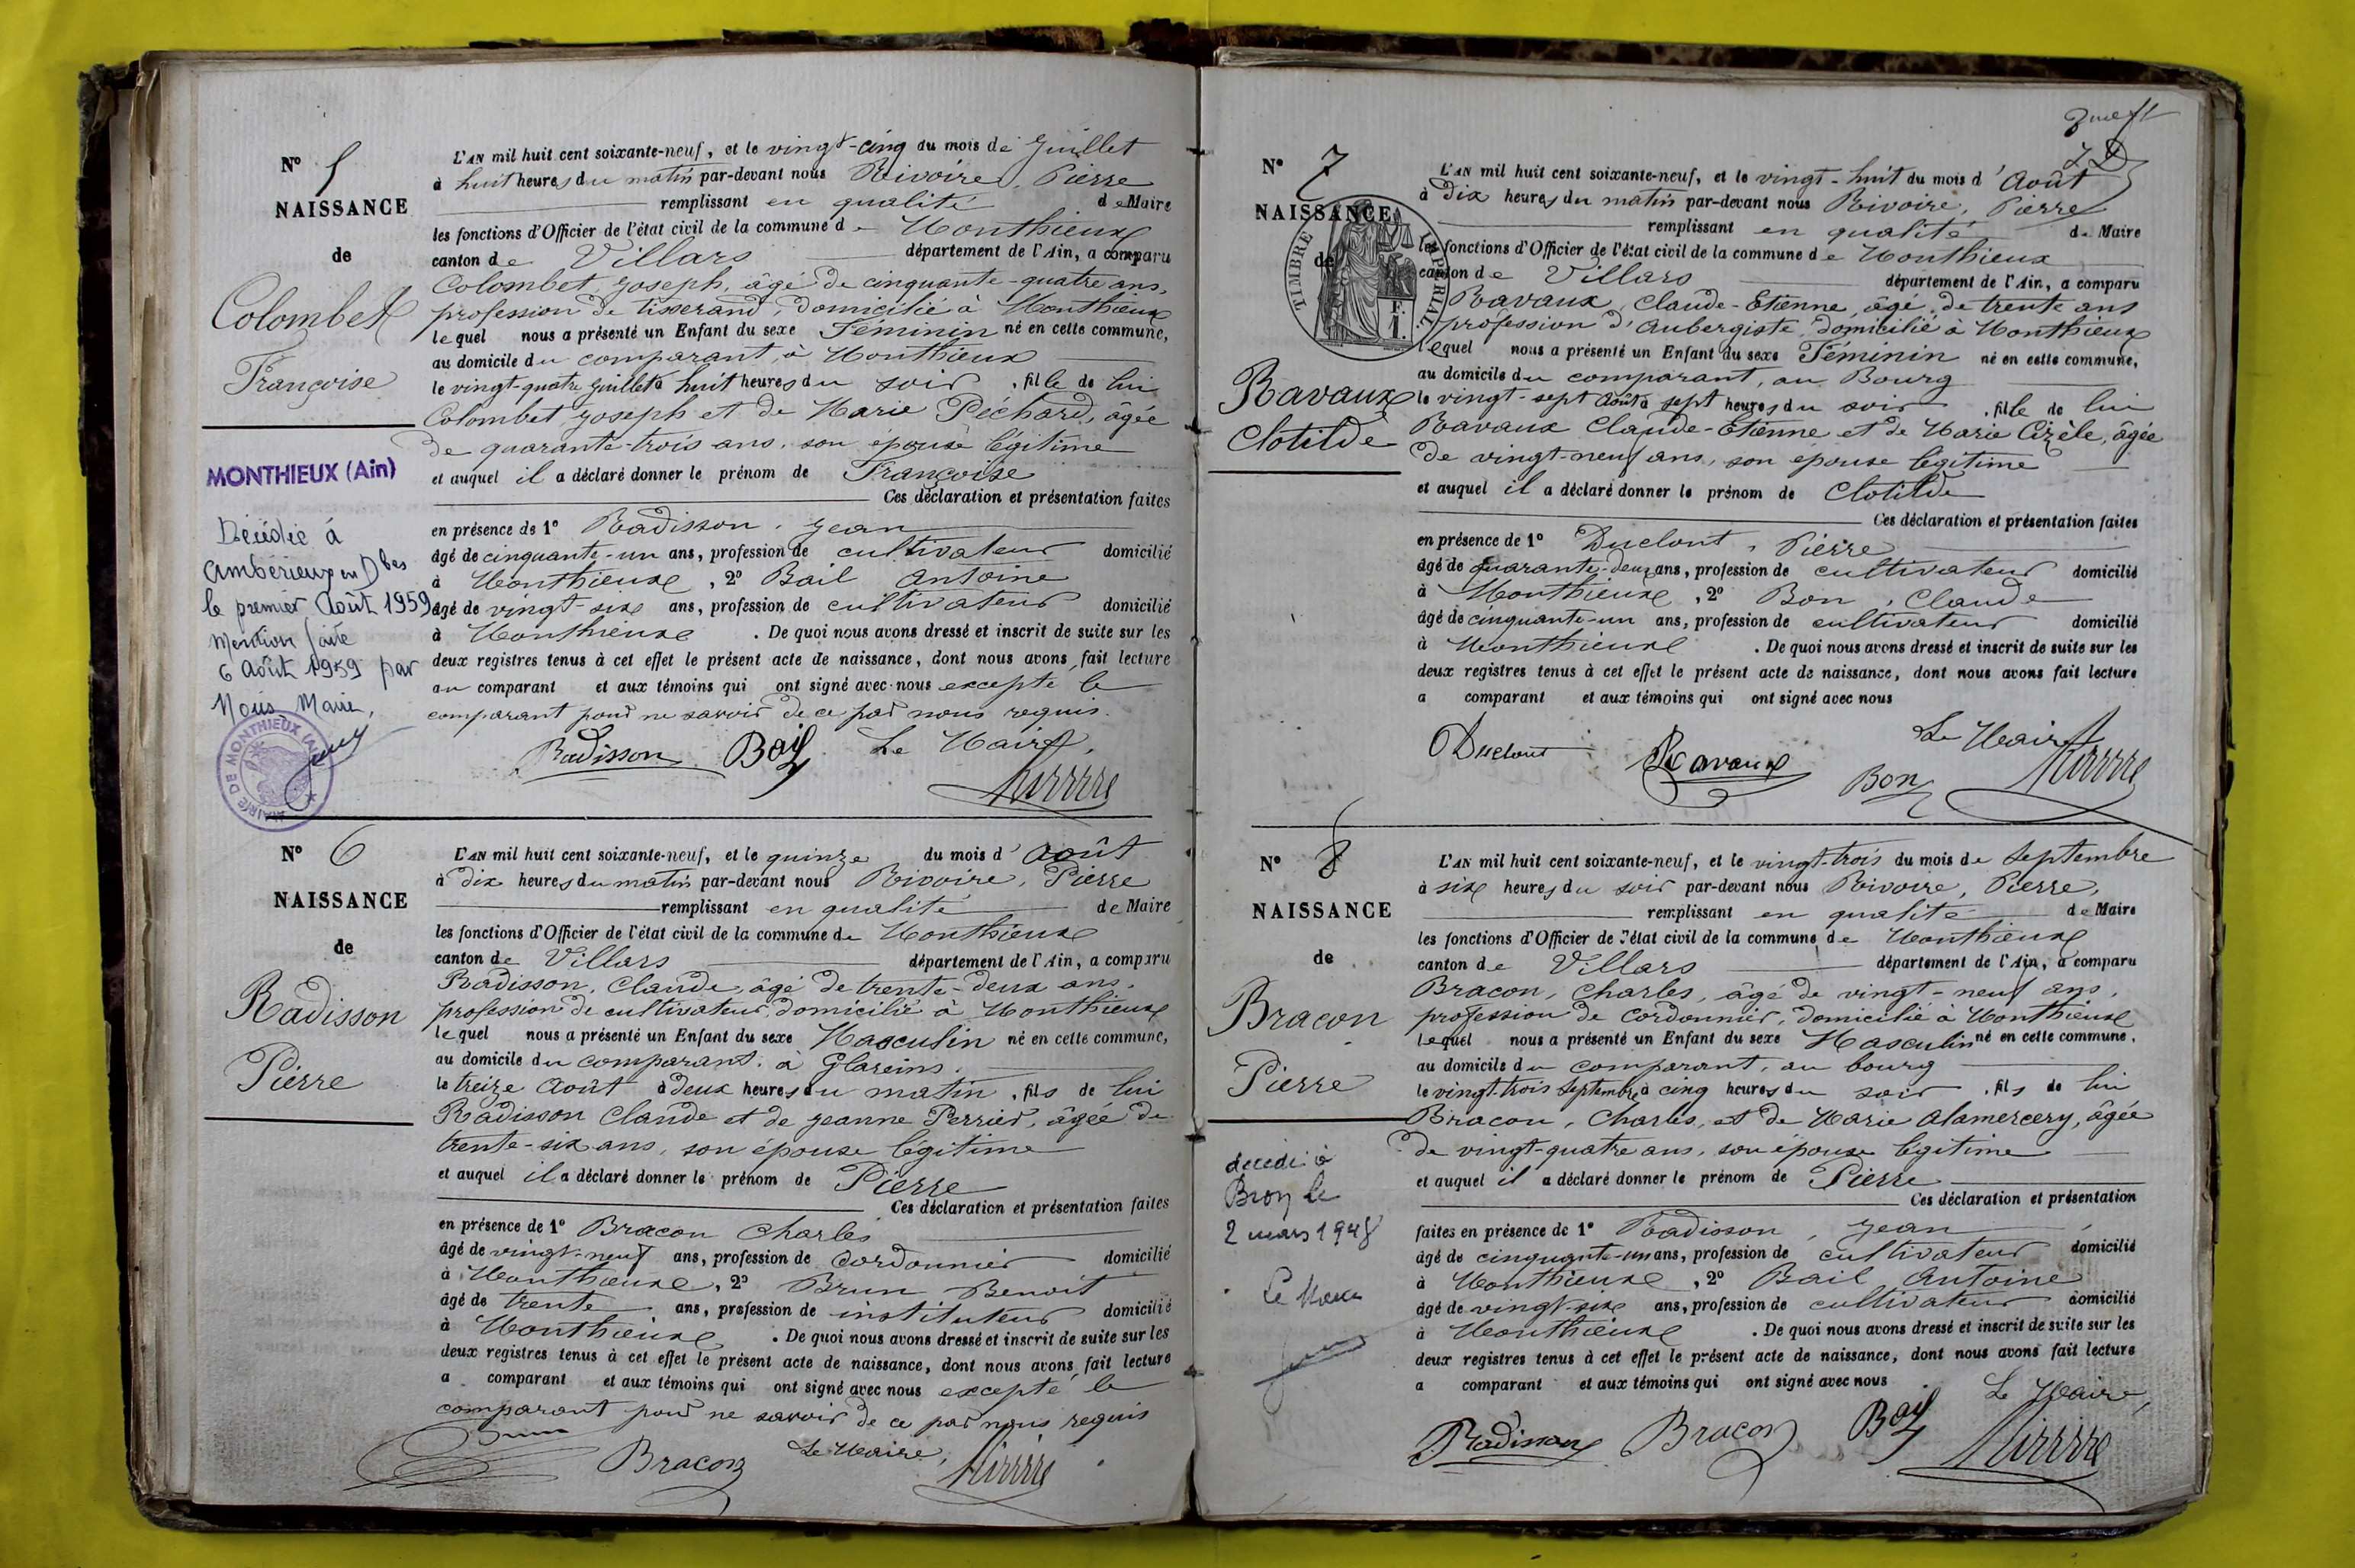 N° 5
NAISSANCE
de
Colombet
Françoise
MONTHIEUX (Ain)
Décédée à
Ambérieux en Dbes
le premier Août 1959
Mention faite
6 Août 1959 par
Nous, Maire,
MAIRIE DE MONTHIEUX (AIN)
L'AN mil huit cent soixante-neuf, et le vingt-cinq du mois de Juillet
à huit heures du matin par-devant nous Rivoire, Pierre
remplissant en qualité de Maire
les fonctions d'Officier de l'état civil de la commune de Monthieux
canton de Villars département de l'Ain, a comparu
Colombet, Joseph, âgé de cinquante-quatre ans,
profession de tisserand, domicilié à Monthieux
lequel nous a présenté un Enfant du sexe Féminin né en cette commune,
au domicile du comparant, à Monthieux
le vingt-quatre Juillet à huit heures du soir, fille de lui
Colombet Joseph et de Marie Péchard, âgée
de quarante-trois ans, son épouse légitime
et auquel il a déclaré donner le prénom de Françoise
Ces déclaration et présentation faites
en présence de 1° Radisson, Jean
âgé de cinquante-un ans, profession de cultivateur domicilié
à Monthieux, 2° Bail Antoine
âgé de vingt-six ans, profession de cultivateur domicilié
à Monthieux. De quoi nous avons dressé et inscrit de suite sur les
deux registres tenus à cet effet le présent acte de naissance, dont nous avons fait lecture
au comparant et aux témoins qui ont signé avec nous excepté le
comparant pour ne savoir de ce par nous requis.
Radisson Bail Le Maire,
N° 6
NAISSANCE
de
Radisson
Pierre
L'AN mil huit cent soixante-neuf, et le quinze du mois d'Août
à dix heures du matin par-devant nous Rivoire, Pierre
remplissant en qualité de Maire
les fonctions d'Officier de l'état civil de la commune de Monthieux
canton de Villars département de l'Ain, a comparu
Radisson, Claude, âgé de trente-deux ans,
profession de cultivateur, domicilié à Monthieux
lequel nous a présenté un Enfant du sexe Masculin né en cette commune,
au domicile du comparant, à Glareins.
le treize Août à deux heures du matin, fils de lui
Radisson Claude et de Jeanne Perrier, âgée de
trente-six ans, son épouse légitime
et auquel il a déclaré donner le prénom de Pierre
Ces déclaration et présentation faites
en présence de 1° Bracon Charles
âgé de vingt-neuf ans, profession de Cordonnier domicilié
à Monthieux, 2° Brun Benoît
âgé de trente ans, profession de instituteur domicilié
à Monthieux. De quoi nous avons dressé et inscrit de suite sur les
deux registres tenus à cet effet le présent acte de naissance, dont nous avons fait lecture
a comparant et aux témoins qui ont signé avec nous excepté le
comparant pour ne savoir de ce par nous requis
Brun
Bracon Le Maire,
N° 7
NAISSANCE
de
TIMBRE IMPERIAL
Ravaux
Clotilde
L'AN mil huit cent soixante-neuf, et le vingt-huit du mois d'Août
à Dix heures du matin par-devant nous Rivoire, Pierre
remplissant en qualité de Maire
les fonctions d'Officier de l'état civil de la commune de Monthieux
canton de Villars département de l'Ain, a comparu
Ravaux, Claude-Etienne, âgé de trente ans
profession d'Aubergiste, domicilié à Monthieux
lequel nous a présenté un Enfant du sexe Féminin né en cette commune,
au domicile du comparant, au Bourg
le vingt-sept Août à sept heures du soir, fille de lui
Ravaux Claude-Etienne et de Marie Cizèle, âgée
de vingt-neuf ans, son épouse légitime
et auquel il a déclaré donner le prénom de Clotilde
Ces déclaration et présentation faites
en présence de 1° Duclout, Pierre
âgé de quarante-deux ans, profession de cultivateur domicilié
à Monthieux, 2° Bon, Claude
âgé de cinquante-un ans, profession de cultivateur domicilié
à Monthieux. De quoi nous avons dressé et inscrit de suite sur les
deux registres tenus à cet effet le présent acte de naissance, dont nous avons fait lecture
a comparant et aux témoins qui ont signé avec nous
Duclout Ravaux Bon Le Maire
N° 8
NAISSANCE
de
Bracon
Pierre
décédé à
Bron le
2 mars 1948
Le Maire
L'AN mil huit cent soixante-neuf, et le vingt-trois du mois de Septembre
à six heures du soir par-devant nous Rivoire, Pierre,
remplissant en qualité de Maire
les fonctions d'Officier de l'état civil de la commune de Monthieux
canton de Villars département de l'Ain, a comparu
Bracon, Charles, âgé de vingt-neuf ans,
profession de Cordonnier, domicilié à Monthieux
lequel nous a présenté un Enfant du sexe Masculin né en cette commune,
au domicile du comparant, au bourg
le vingt-trois Septembre à cinq heures du soir, fils de lui
Bracon, Charles, et de Marie Alamercery, âgée
de vingt-quatre ans, son épouse légitime
et auquel il a déclaré donner le prénom de Pierre
Ces déclaration et présentation
faites en présence de 1° Radisson, Jean
âgé de cinquante-un ans, profession de cultivateur domicilié
à Monthieux, 2° Bail Antoine
âgé de vingt-six ans, profession de cultivateur domicilié
à Monthieux. De quoi nous avons dressé et inscrit de suite sur les
deux registres tenus à cet effet le présent acte de naissance, dont nous avons fait lecture
a comparant et aux témoins qui ont signé avec nous
Radisson Bracon Bail Le Maire,